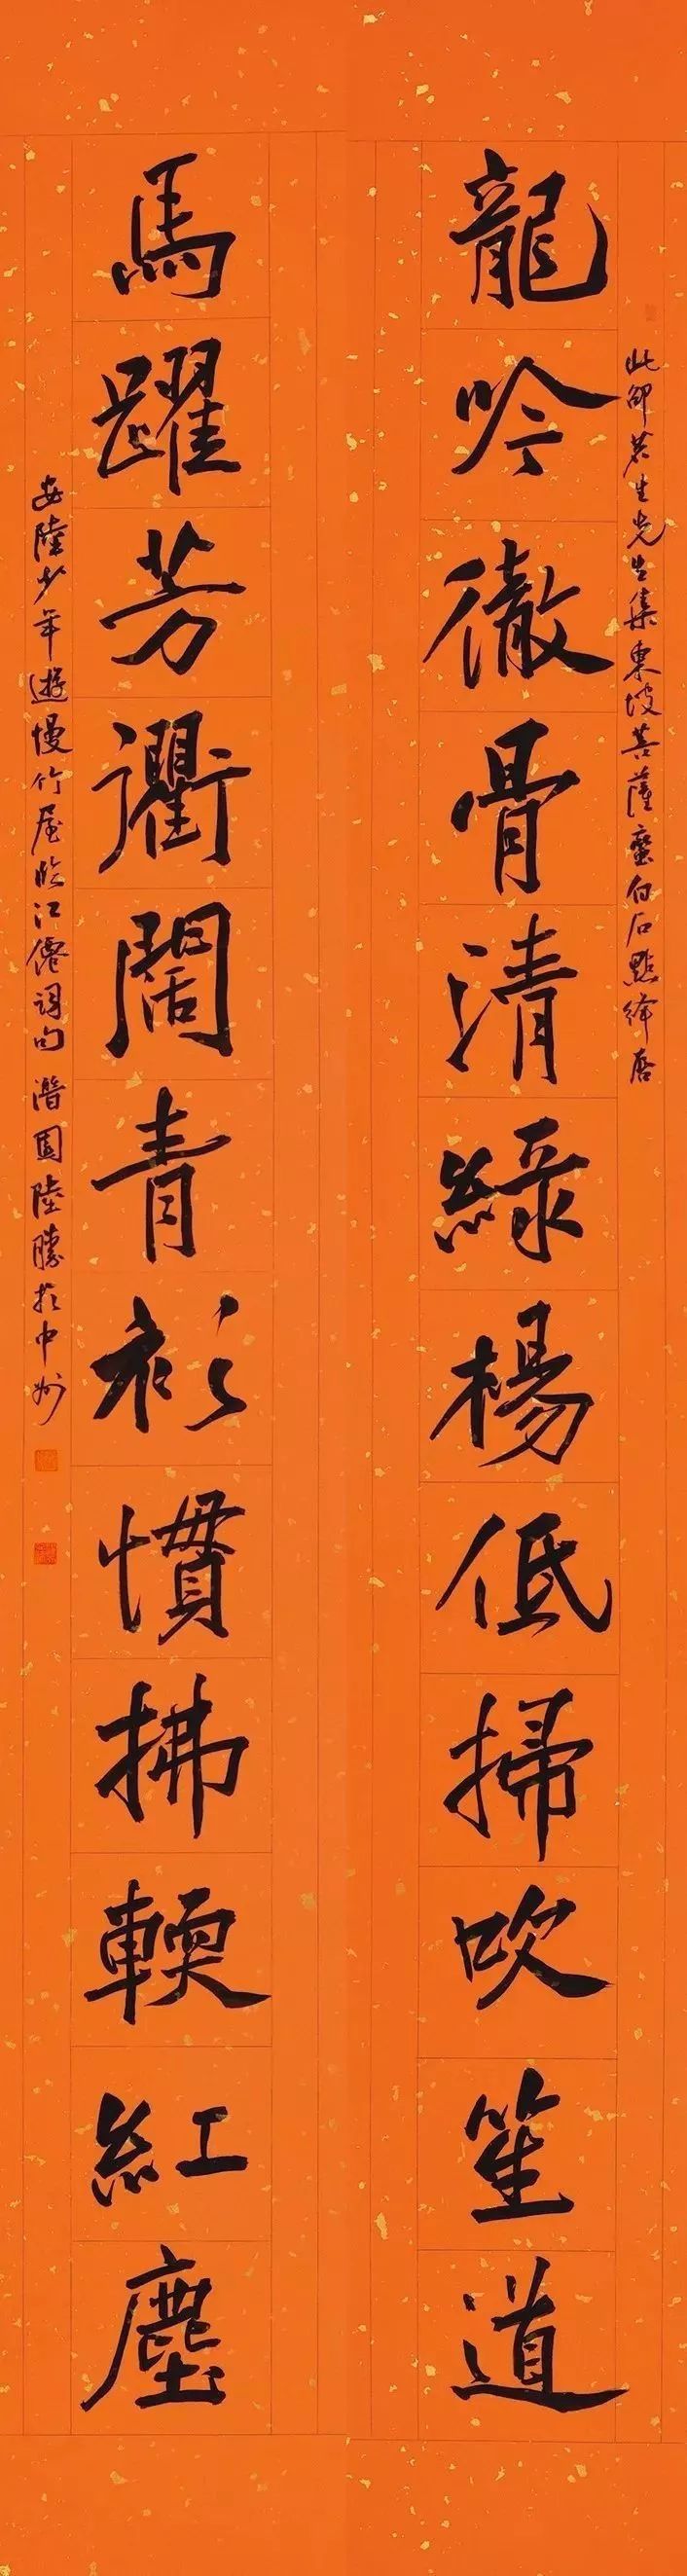 此邵茗生先生集東坡菩薩蠻白石點絳唇
龍吟徹骨清綠楊低掃吹笙道
馬躍芳衢闊青衫慣拂輭紅塵
安陸少年遊慢竹屋臨江僊詞句 潛園陸勝於中州